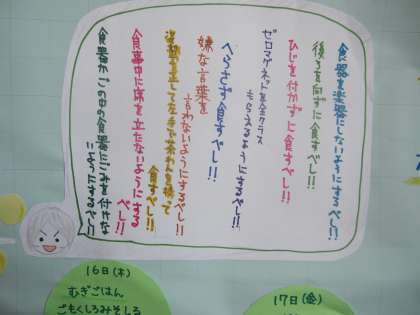 食器を楽器にしないようにするべし!!
後ろを向かずに食すべし!!
ひじを付かずに食すべし!!
ゼロマゲネット基全クラス
もらえるようにするべし!!
べらさず食すべし!!
嫌な言葉を
言わないようにするべし!!
姿勢を正して左手で茶わんを持って
食すべし!!
食事中に席を立たないようにする
べし!!
食器かごの中の食器にごみを付けな
いようにするべし!!
16日(木)
むぎごはん
ごもくしろみそしる
17日(金)